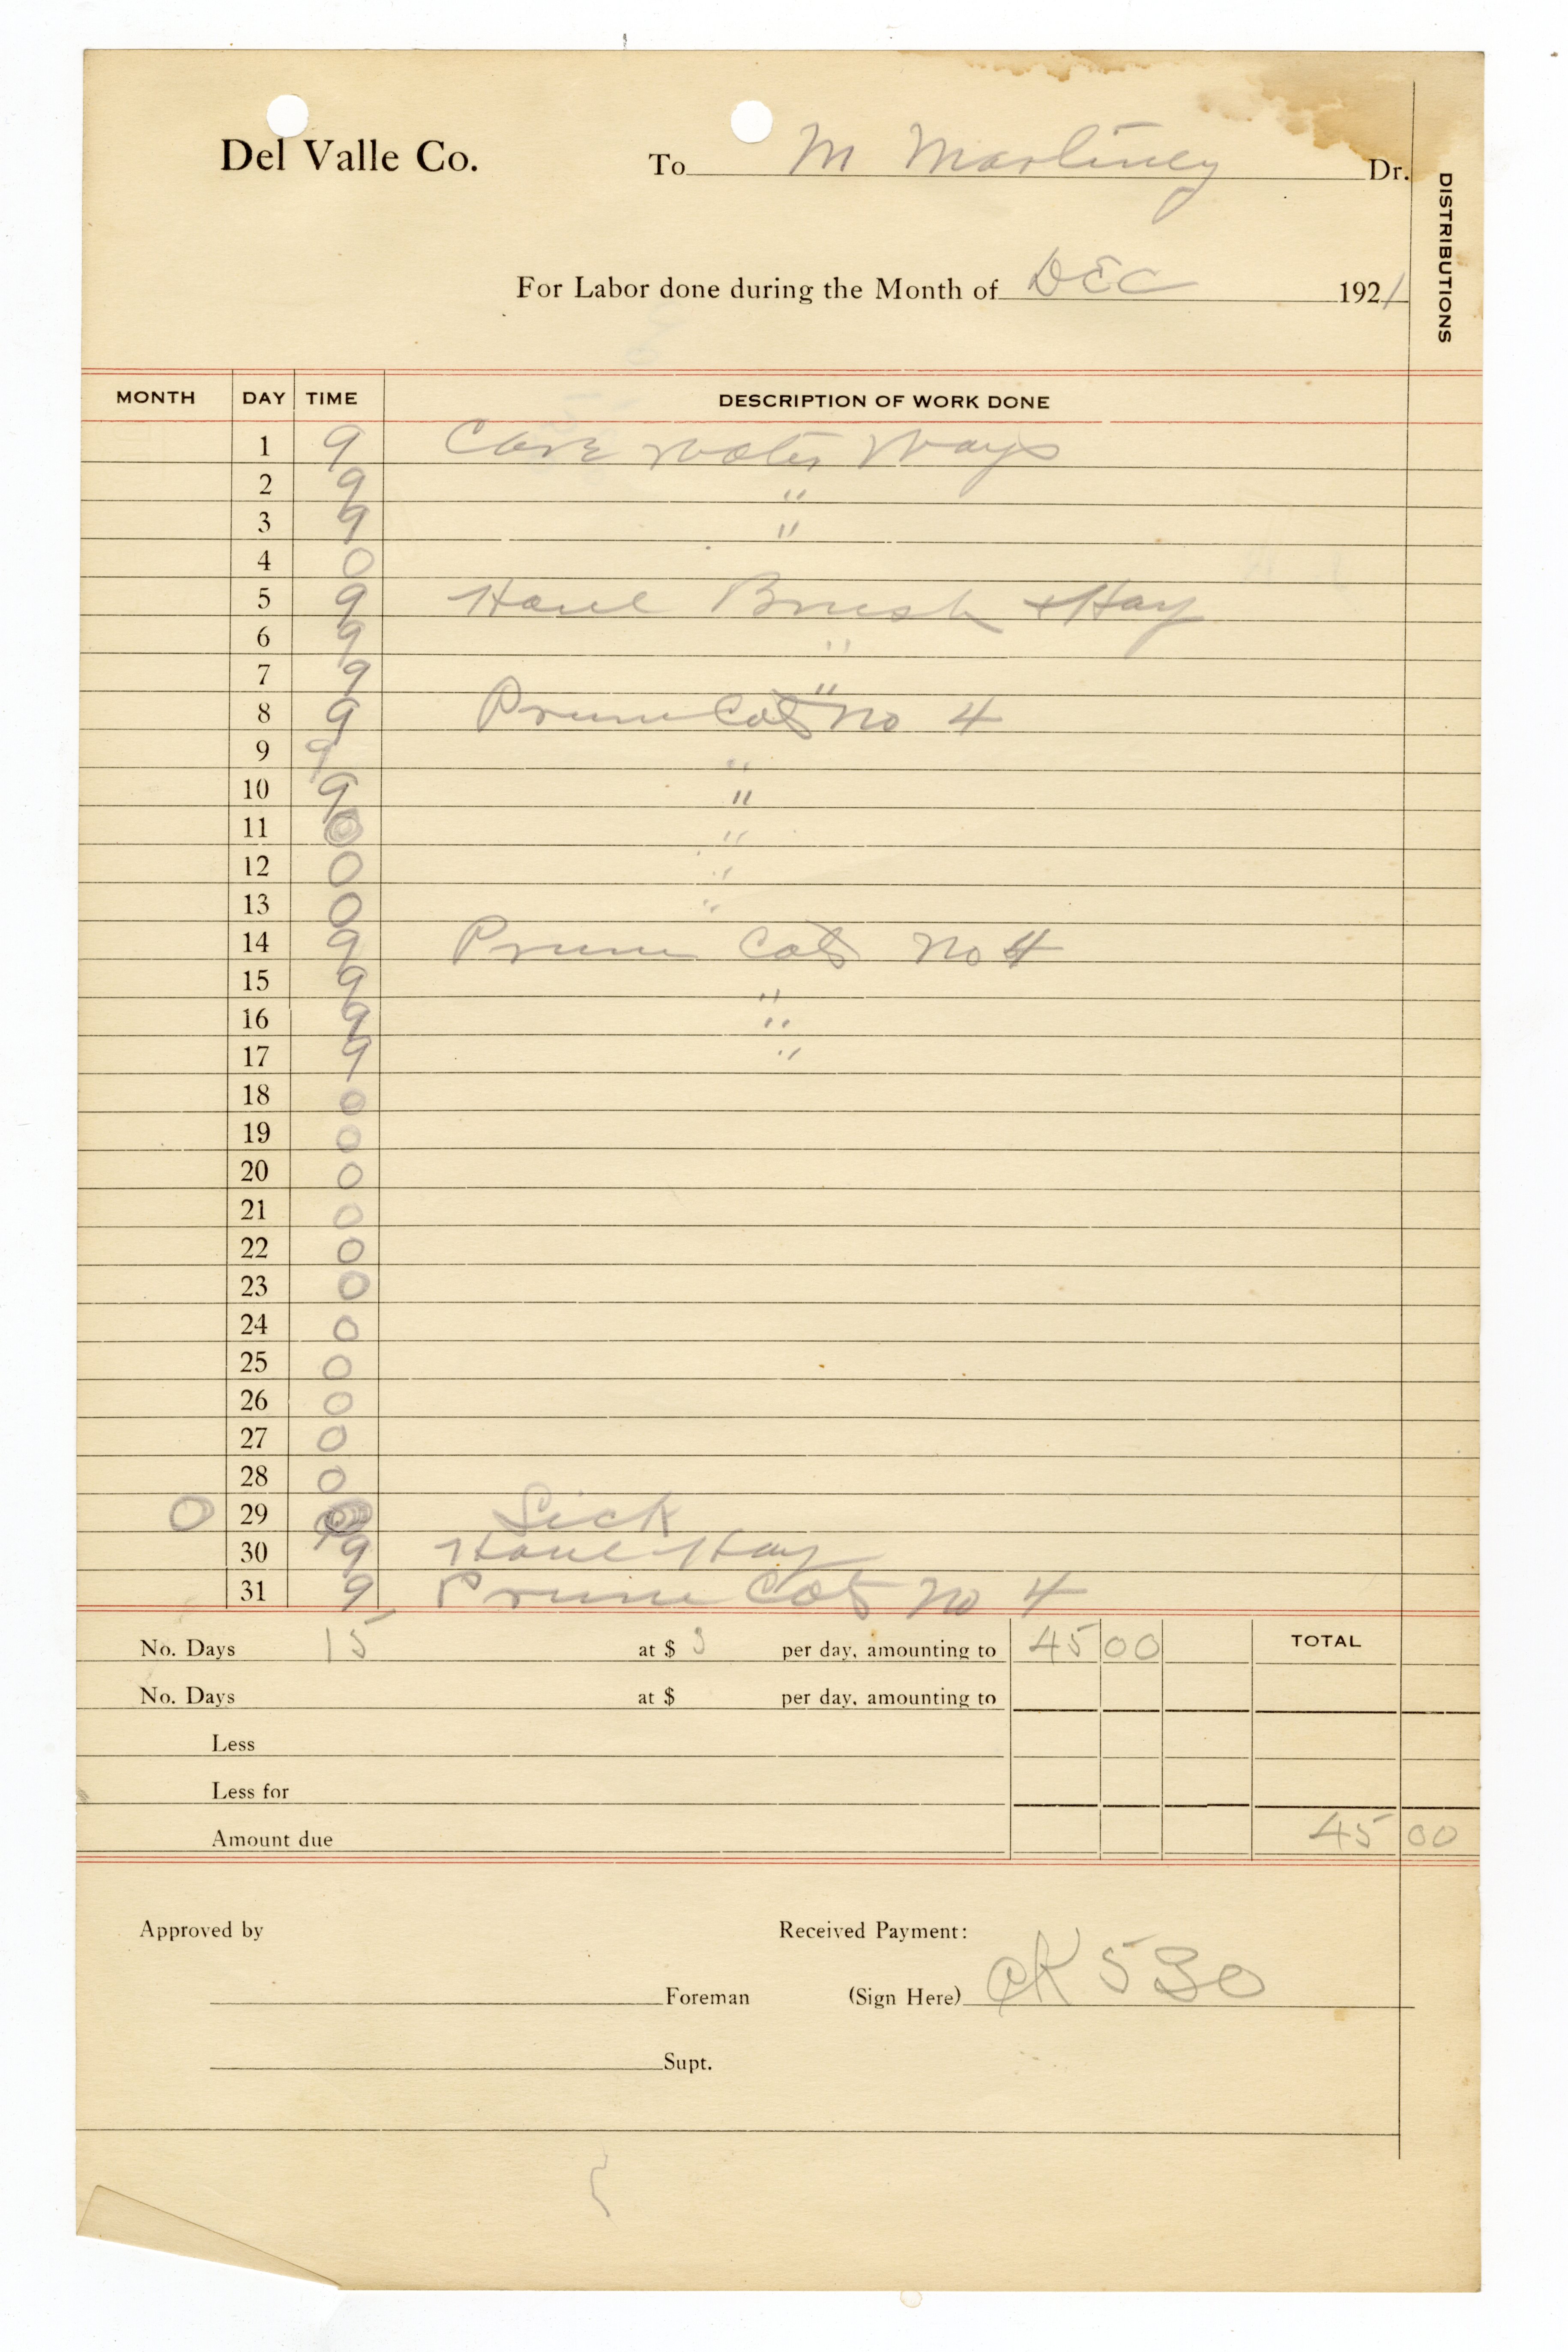 Del Valle Co. To M Martinez Dr.
DISTRIBUTIONS
For Labor done during the Month of DEC 1921
MONTH DAY TIME DESCRIPTION OF WORK DONE
1 9 Care Water Ways
2 9 "
3 9 "
4 0
5 9 Haul Brush + Hay
6 9 "
7 9 "
8 9 Prune Cots No 4
9 9 "
10 9 "
11 0 "
12 0 "
13 0 "
14 9 Prune Cots No 4
15 9 "
16 9 "
17 9 "
18 0
19 0
20 0
21 0
22 0
23 0
24 0
25 0
26 0
27 0
28 0
0 29 Sick
30 9 Haul Hay
31 9 Prune Cots No 4
No. Days 15 at $ 3 per day, amounting to 45 00 TOTAL
No. Days at $ per day, amounting to
Less
Less for
Amount due 45 00
Approved by Received Payment:
Foreman (Sign Here) CK 530
Supt.